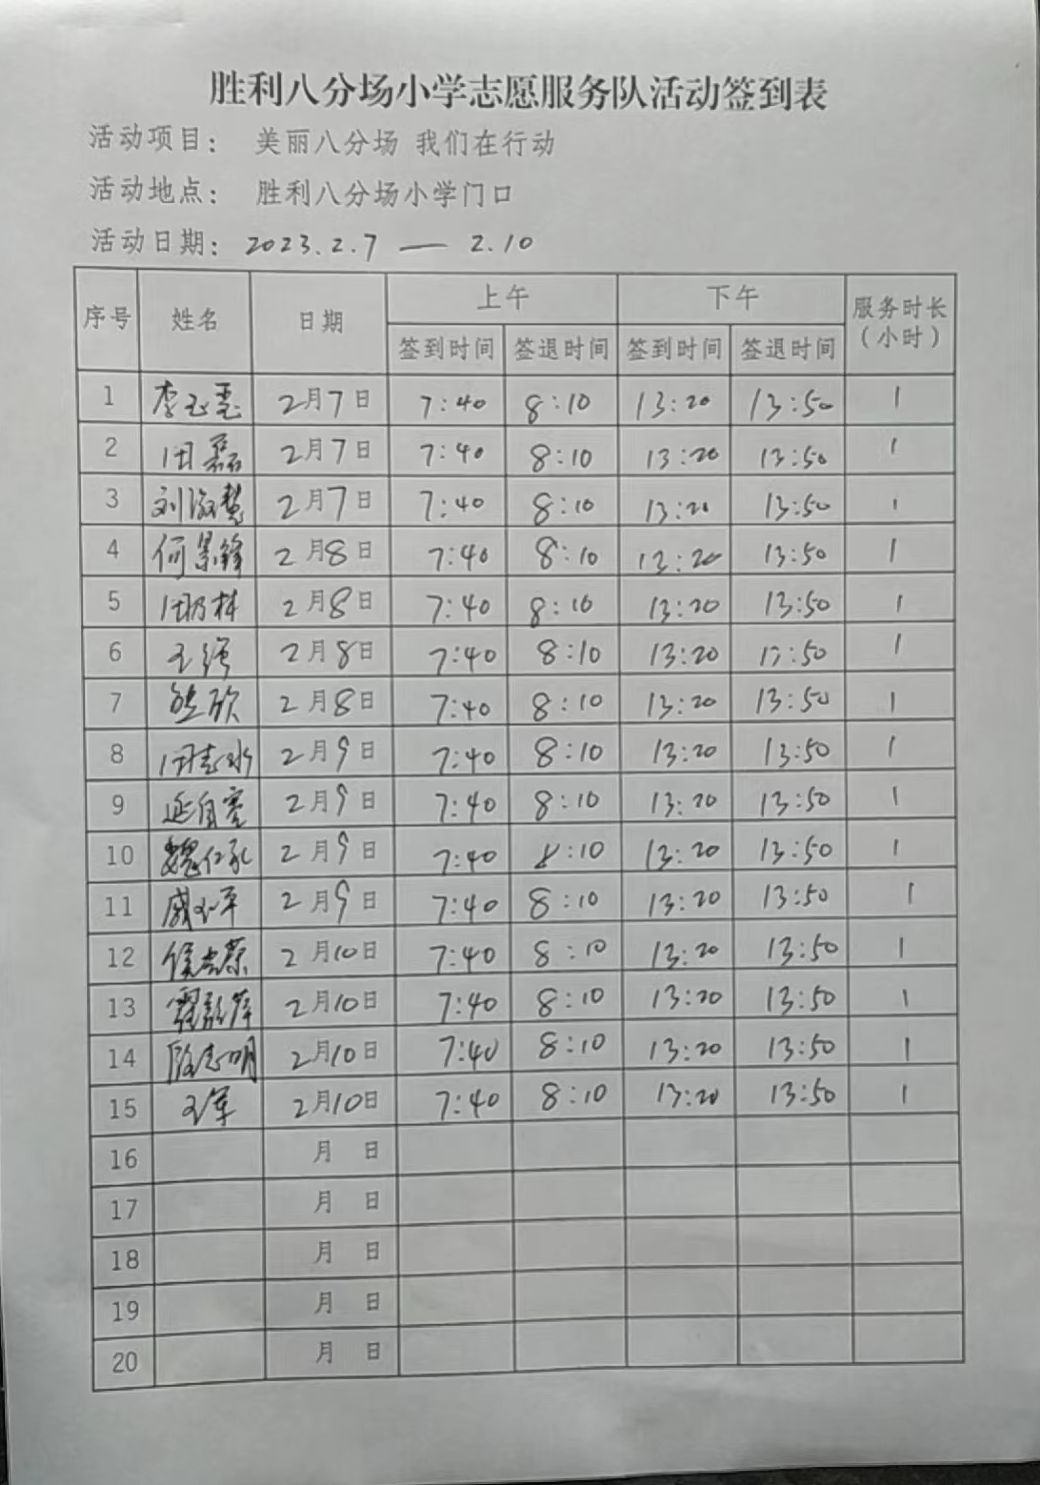 胜利八分场小学志愿服务队活动签到表
活动项目: 美丽八分场 我们在行动
活动地点: 胜利八分场小学门口
活动日期: 2023.2.7 — 2.10
序号 姓名 日期 上午 下午 服务时长(小时)
签到时间 签退时间 签到时间 签退时间
1 李玉 2月7日 7:40 8:10 13:20 13:50 1
2 田磊 2月7日 7:40 8:10 13:20 13:50 1
3 刘淑慧 2月7日 7:40 8:10 13:20 13:50 1
4 何景锋 2月8日 7:40 8:10 13:20 13:50 1
5 田林 2月8日 7:40 8:10 13:20 13:50 1
6 王 2月8日 7:40 8:10 13:20 13:50 1
7 欣 2月8日 7:40 8:10 13:20 13:50 1
8 田志水 2月9日 7:40 8:10 13:20 13:50 1
9 延自 2月9日 7:40 8:10 13:20 13:50 1
10 魏仁 2月9日 7:40 8:10 13:20 13:50 1
11 戚平 2月9日 7:40 8:10 13:20 13:50 1
12 侯荣 2月10日 7:40 8:10 13:20 13:50 1
13 萍 2月10日 7:40 8:10 13:20 13:50 1
14 志明 2月10日 7:40 8:10 13:20 13:50 1
15 王军 2月10日 7:40 8:10 13:20 13:50 1
16 月 日
17 月 日
18 月 日
19 月 日
20 月 日